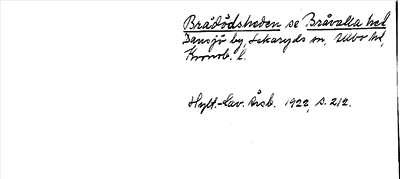 Brådödsheden se Bråvalla hed
Dansjö by, Sekaryds sn, Allbo hd,
Kronob. l.
Hylt.-Cav. Årsb. 1922, s. 212.